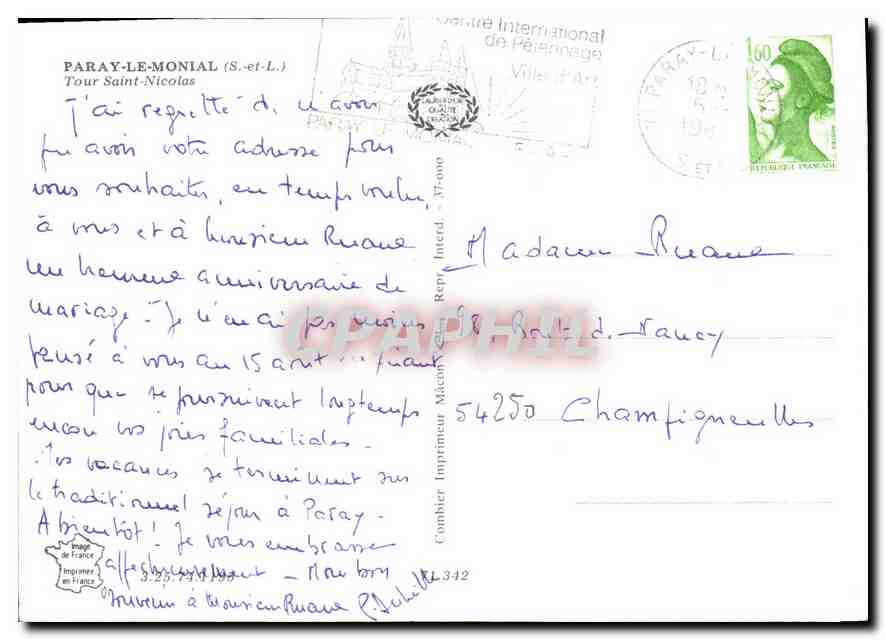 PARAY-LE-MONIAL (S.-et-L.)
Tour Saint-Nicolas
Centre International
de Pèlerinage
Ville d'Art
PARAY LE MONIAL
LAURÉAT DE LA
QUALITÉ
CRÉATION
PARAY-L
1,60
REPUBLIQUE FRANÇAISE
J'ai regretté de n'avoir
pu avoir votre adresse pour
vous souhaiter, en temps voulu,
à vous et à Monsieur Ruane
un heureux anniversaire de
mariage - Je n'en ai pas moins
pensé à vous au 15 août priant
pour que se poursuivent longtemps
encore vos joies familiales -
Mes vacances se terminent sur
le traditionnel séjour à Paray -
A bientôt ! Je vous embrasse
affectueusement - Mon bon
souvenir à Monsieur Ruane
Madame Ruane
98, Boul. de Nancy
54250 Champigneulles
CPAPHIL
Combier Imprimeur Mâcon Repr. Interd. - 37-000
Image
de France
Imprimée
en France
3.25.74.1195
342